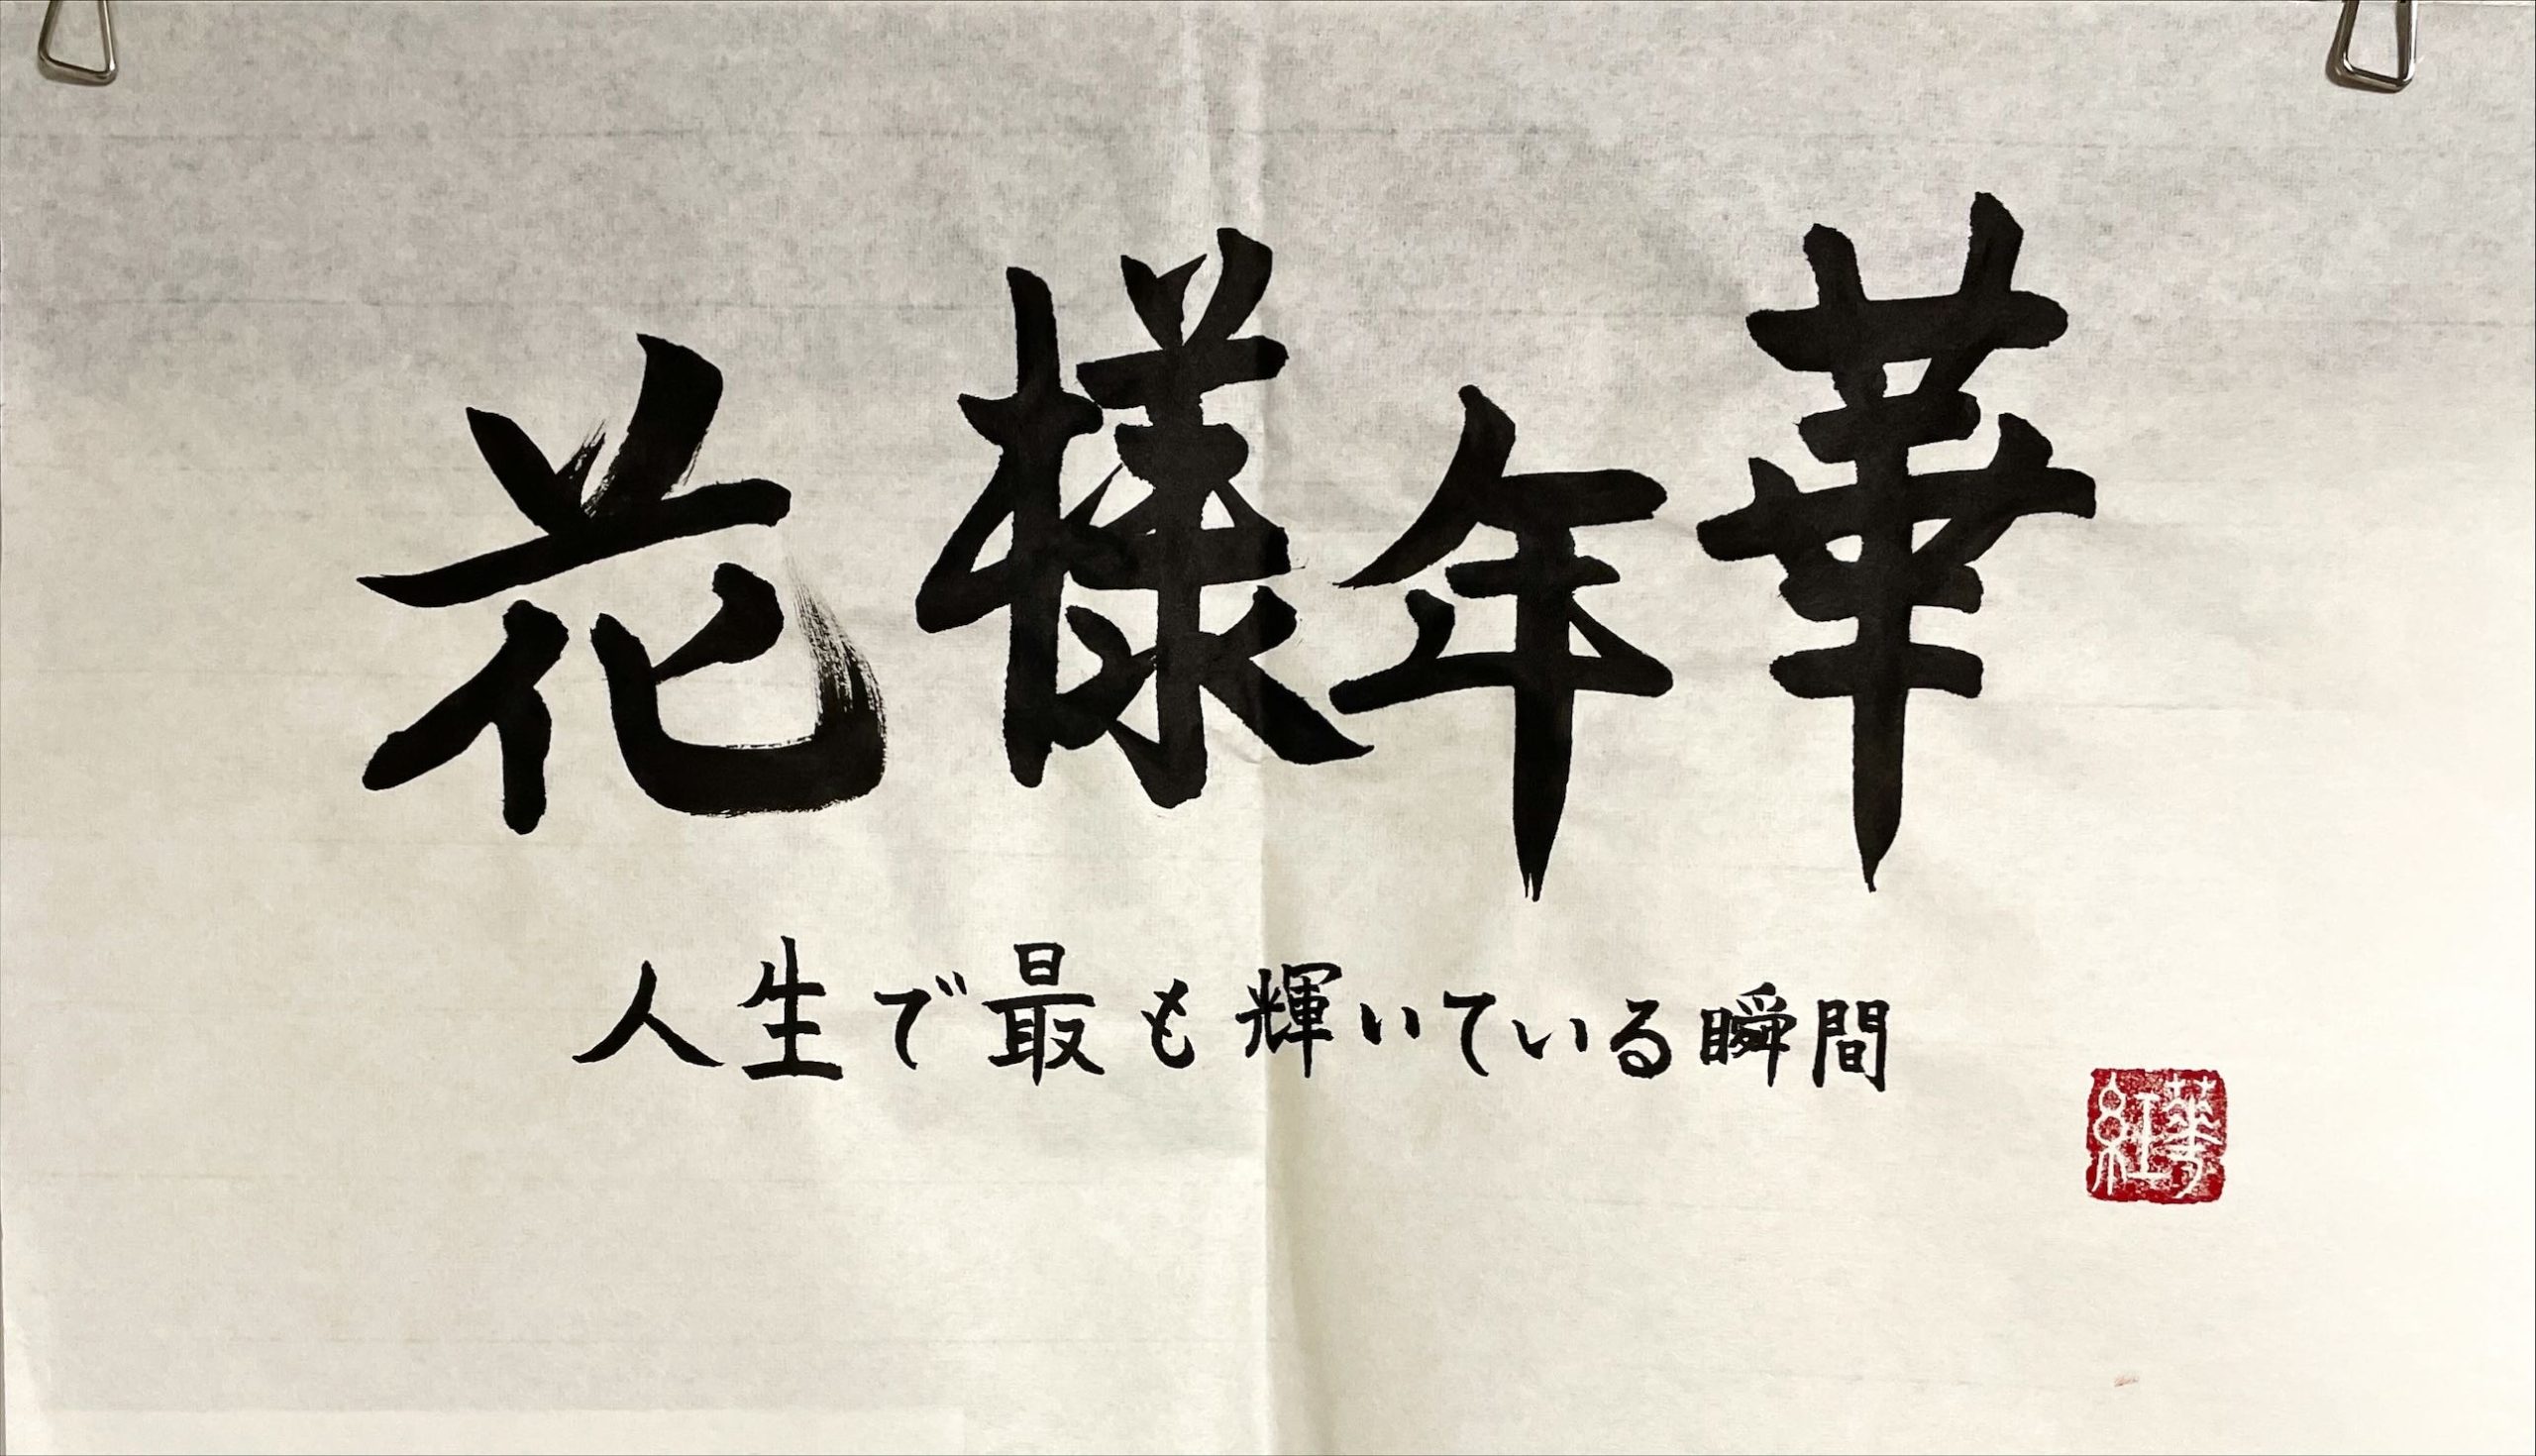 花樣年華
人生で最も輝いている瞬間
華紅